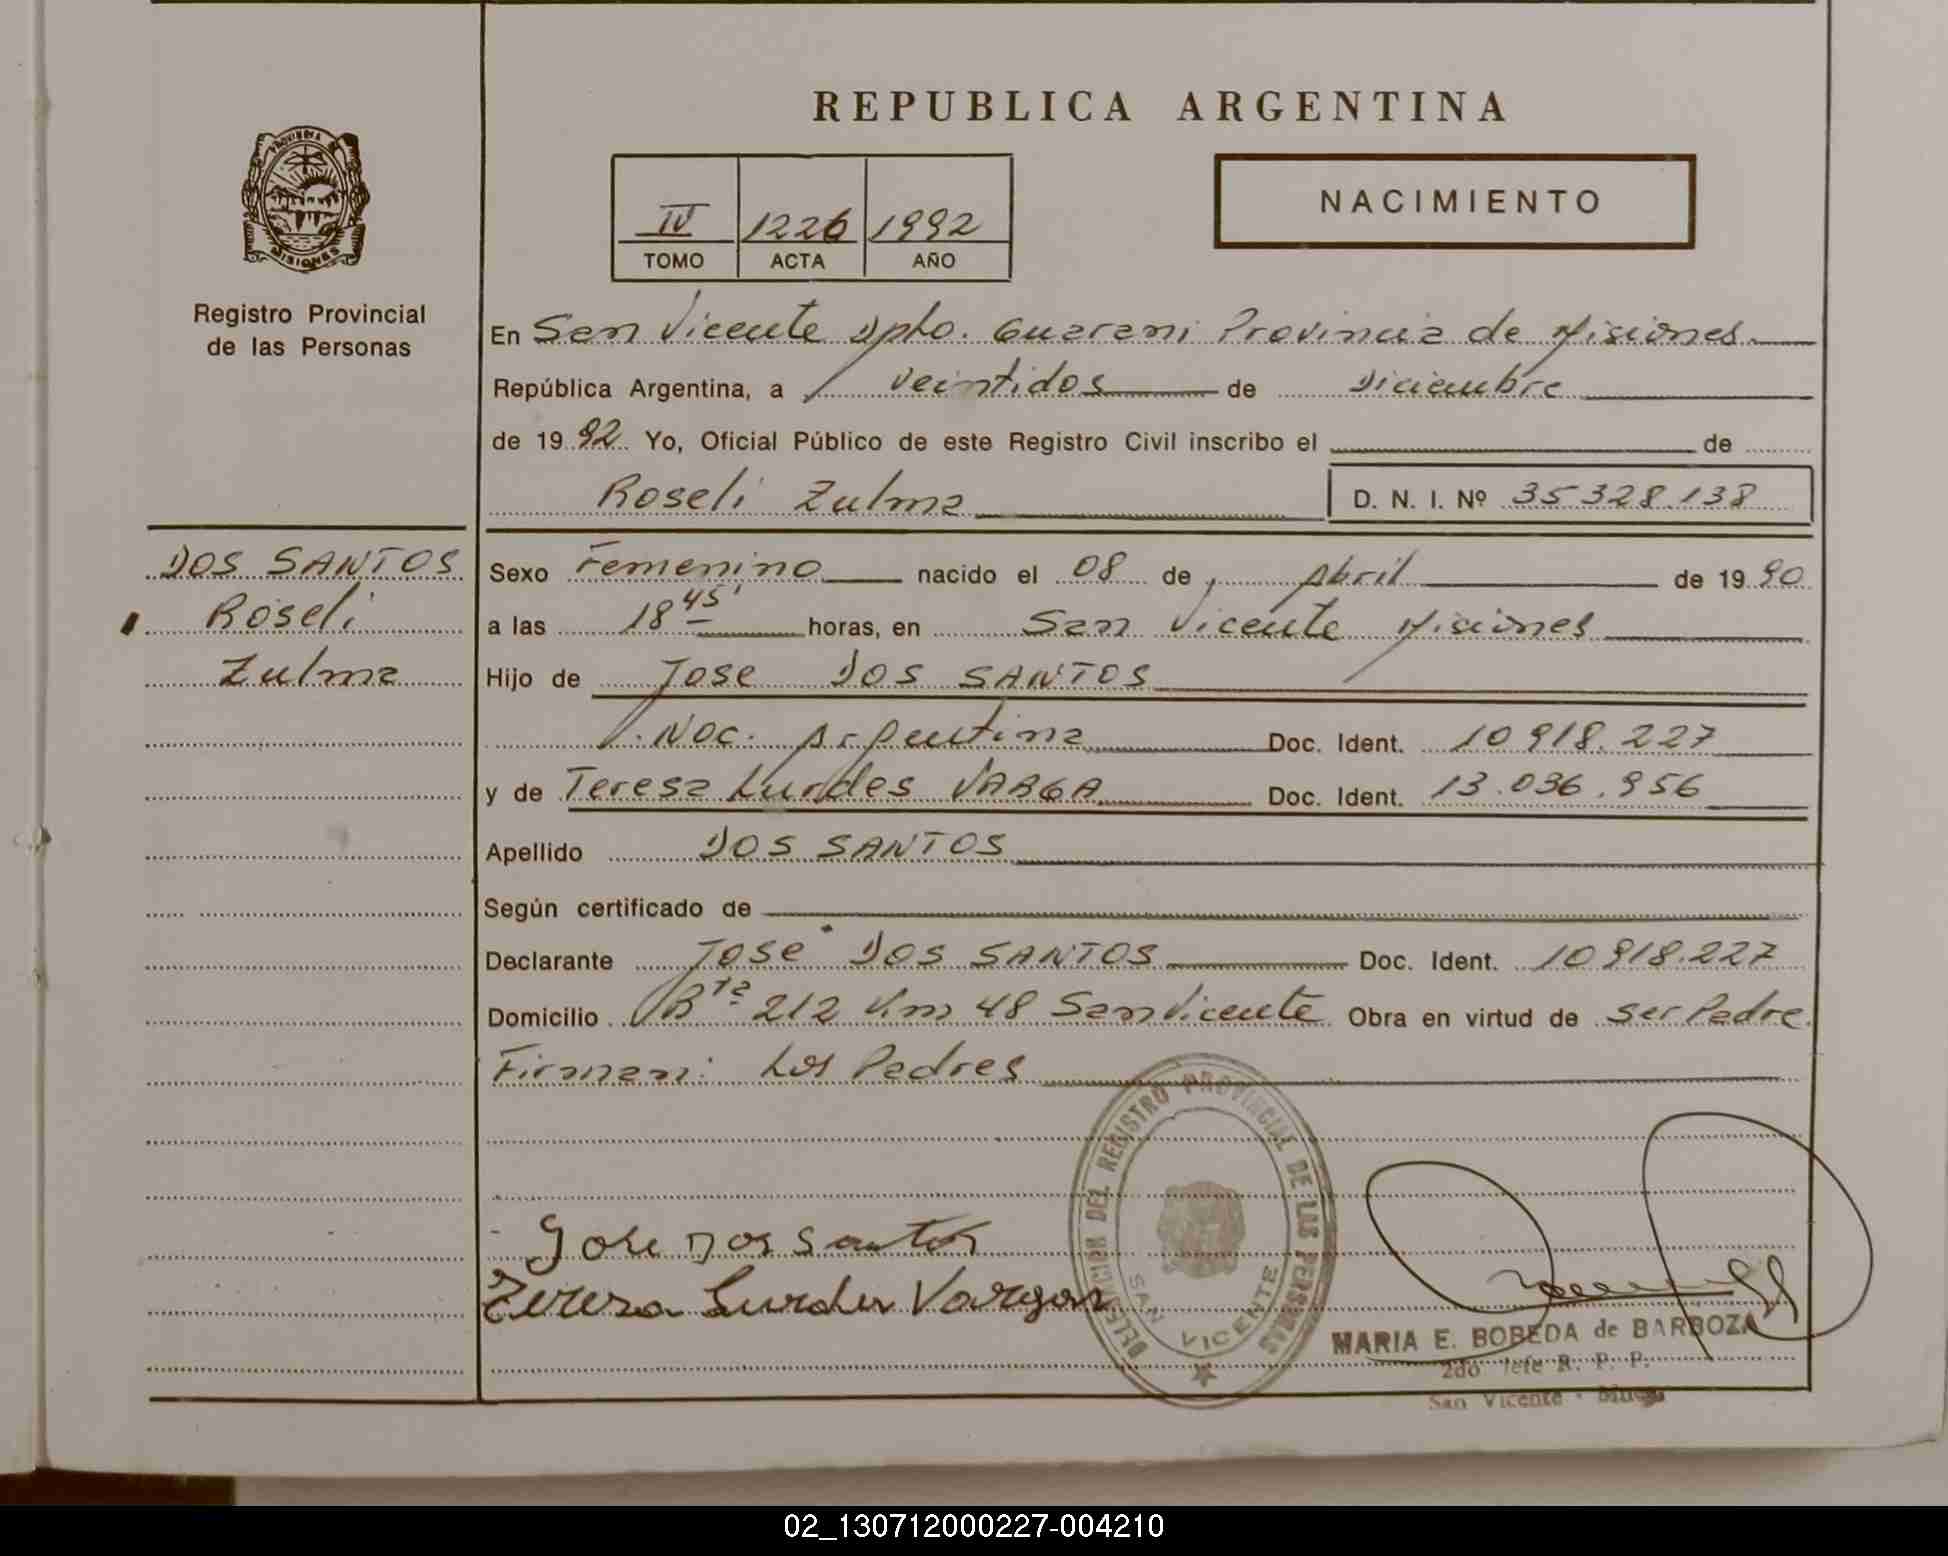 REPUBLICA ARGENTINA
PROVINCIA
MISIONES
Registro Provincial
de las Personas
IV 1226 1992
TOMO ACTA AÑO
NACIMIENTO
En San Vicente Dpto. Guarani Provincia de Misiones
República Argentina, a veintidos de Diciembre
de 1992 Yo, Oficial Público de este Registro Civil inscribo el de
Roseli Zulma D. N. I. Nº 35328.138
DOS SANTOS
Roseli
Zulma
Sexo Femenino nacido el 08 de Abril de 1990
a las 18 45' horas, en San Vicente Misiones
Hijo de Jose DOS SANTOS
Nac. Argentina Doc. Ident. 10918.227
y de Teresa Lurdes VARGA Doc. Ident. 13.036.956
Apellido DOS SANTOS
Según certificado de
Declarante Jose DOS SANTOS Doc. Ident. 10918.227
Domicilio Rta 212 Km 48 San Vicente Obra en virtud de ser Padre.
Firman: Los Padres
Jose Dos Santos
Tereza Lurdes Vargas
DELEGACION DEL REGISTRO PROVINCIAL DE LAS PERSONAS
SAN VICENTE
MARIA E. BOBEDA de BARBOZA
2do Jefe R. P. P.
San Vicente - Mnes.
02_130712000227-004210